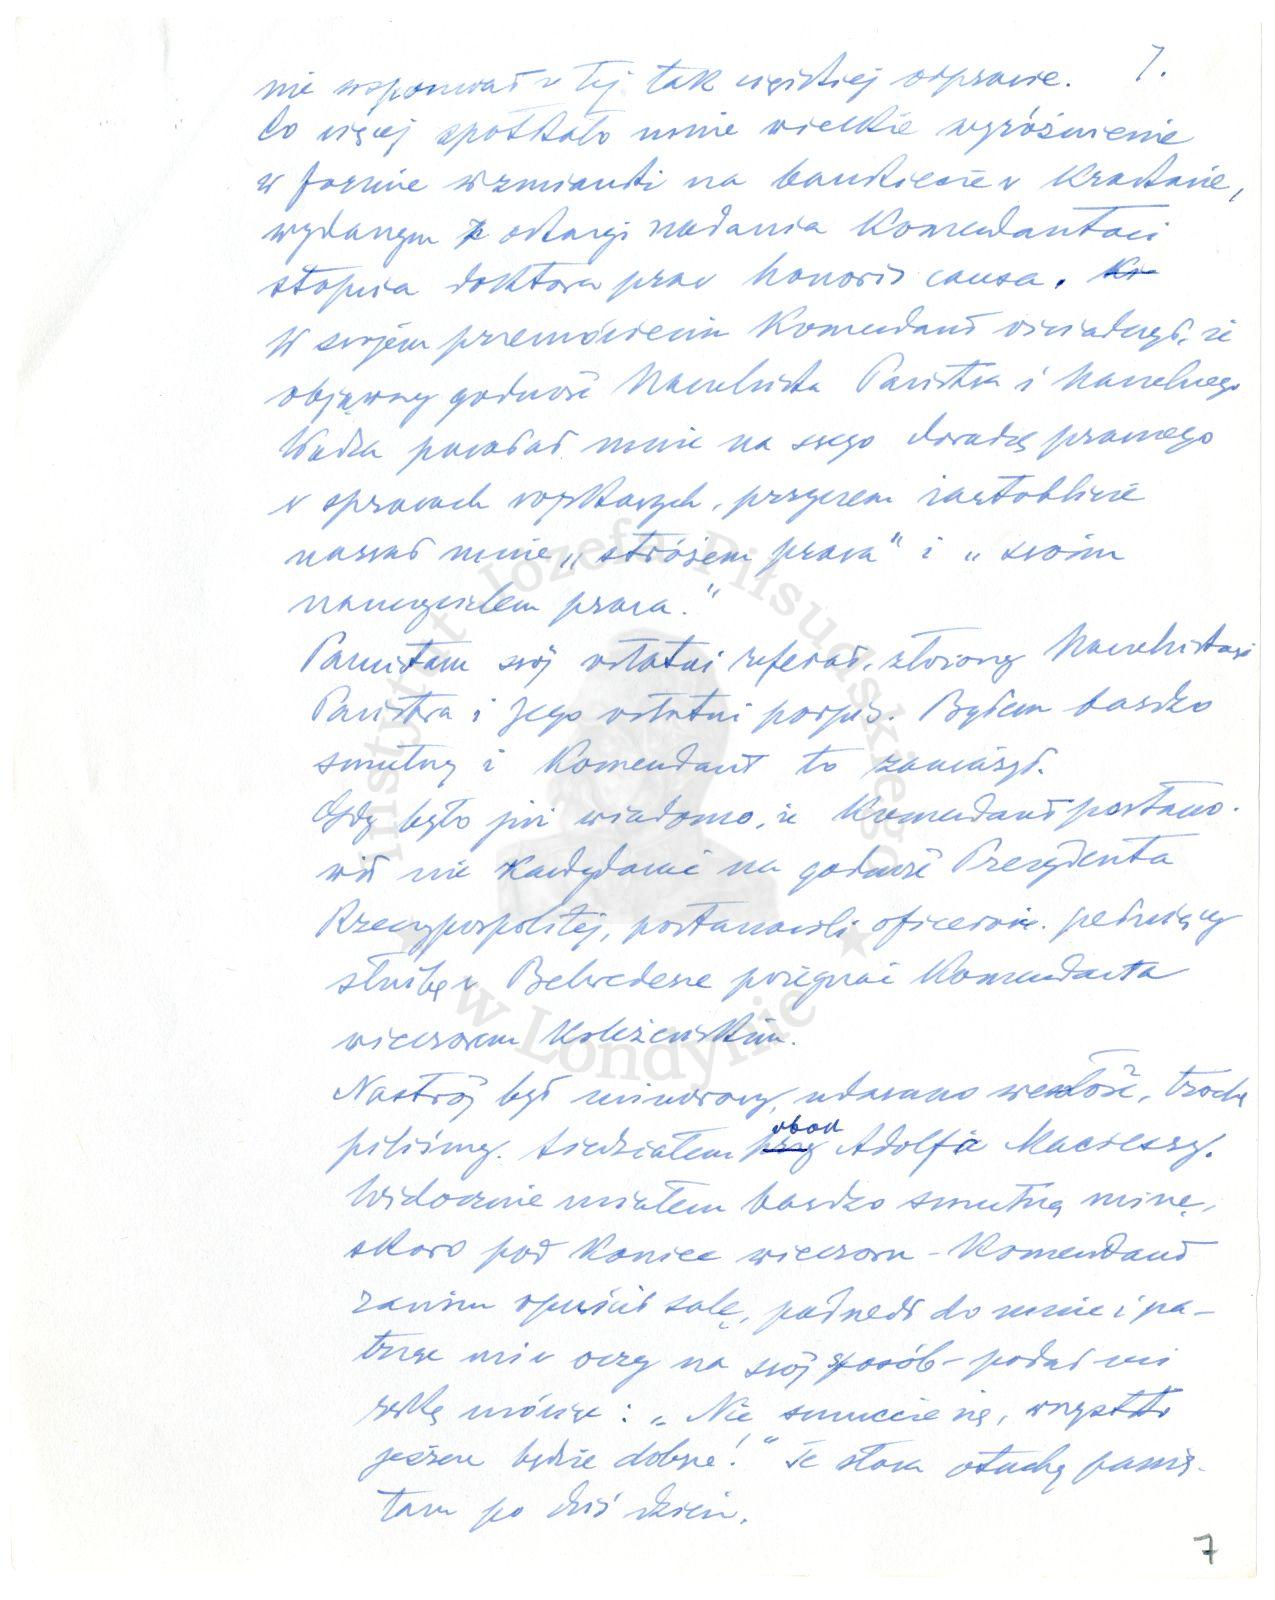 7.
nie wspomniał w tej tak ciężkiej odprawie.
Co więcej spotkało mnie wielkie wyróżnienie
w formie wzmianki na bankiecie w Krakowie,
wydanym z okazji nadania Komendantowi
stopnia doktora praw honoris causa.
W swojem przemówieniu Komendant oświadczył, że
objąwszy godność Naczelnika Państwa i Naczelnego
Wodza powołał mnie na swego doradcę prawnego
w sprawach wojskowych, przyczem żartobliwie
nazwał mnie „stróżem prawa" i „swoim
nauczycielem prawa."
Pamiętam swój ostatni referat, złożony Naczelnikowi
Państwa i Jego ostatni podpis. Byłem bardzo
smutny i Komendant to zauważył.
Gdy było już wiadomo, że Komendant postano-
wił nie kandydować na godność Prezydenta
Rzeczypospolitej, postanowili oficerowie pełniący
służbę w Belwederze pożegnać Komendanta
wieczorem koleżeńskim.
Nastrój był minorowy, udawano wesołość, trochę
piliśmy. Siedziałem przy obok Adolfa Macieszy.
Widocznie miałem bardzo smutną minę,
skoro pod koniec wieczoru - Komendant
zanim opuścił salę, podszedł do mnie i pa-
trząc mi w oczy na swój sposób - podał mi
rękę mówiąc: „Nie smućcie się, wszystko
jeszcze będzie dobrze!" Te słowa otuchy pamię-
tam po dziś dzień.
7
Instytut Józefa Piłsudskiego
w Londynie